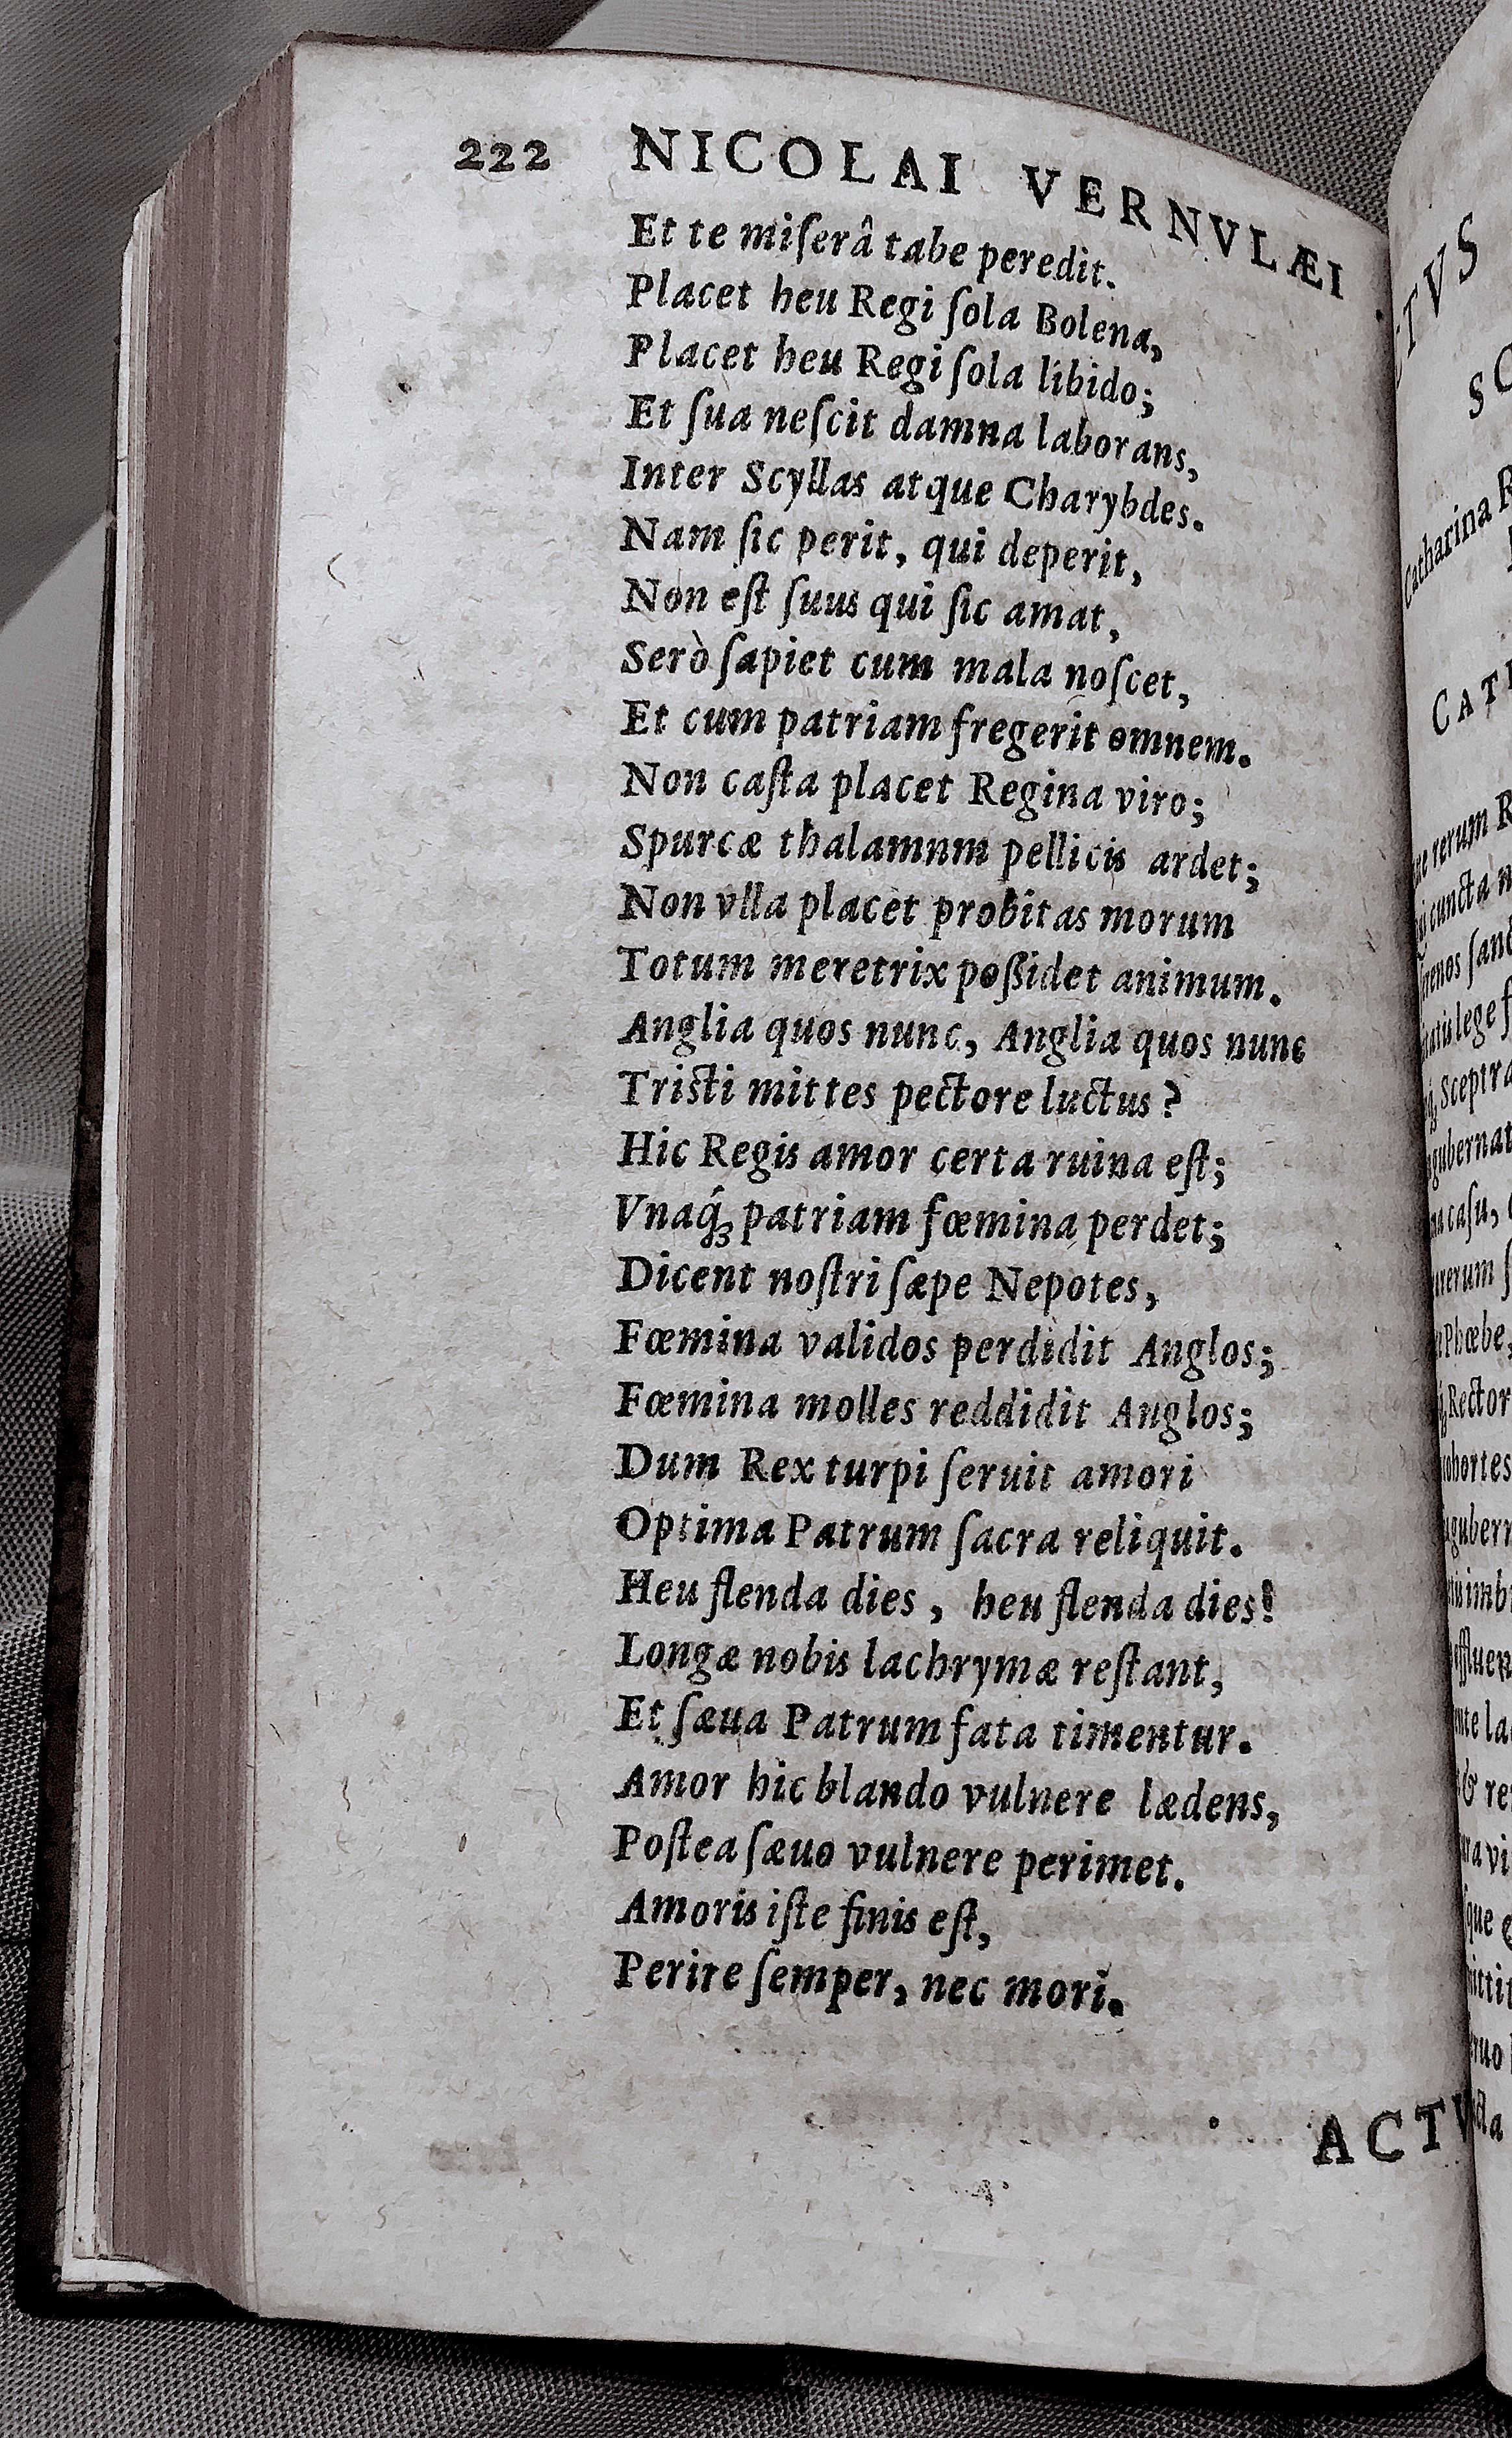 222 NICOLAI VERNVLÆI
Et te miſerâ tabe peredit.
Placet heu Regi ſola Bolena,
Placet heu Regi ſola libido;
Et ſua neſcit damna laborans,
Inter Scyllas atque Charybdes.
Nam ſic perit, qui deperit,
Non eſt ſuus qui ſic amat,
Serò ſapiet cum mala noſcet,
Et cum patriam fregerit omnem.
Non caſta placet Regina viro;
Spurcæ thalamnm pellicis ardet;
Non vlla placet probitas morum
Totum meretrix poſſidet animum.
Anglia quos nunc, Anglia quos nunc
Triſti mittes pectore luctus?
Hic Regis amor certa ruina eſt;
Vnaq́ꝫ patriam fœmina perdet;
Dicent noſtri ſæpe Nepotes,
Fœmina validos perdidit Anglos;
Fœmina molles reddidit Anglos;
Dum Rex turpi ſeruit amori
Optima Patrum ſacra reliquit.
Heu flenda dies, heu flenda dies!
Longæ nobis lachrymæ reſtant,
Et ſæua Patrum fata timentur.
Amor hic blando vulnere lædens,
Poſtea ſæuo vulnere perimet.
Amoris iſte finis eſt,
Perire ſemper, nec mori.
Catharina
rerum
cuncta
lege
Sceptra
caſu,
Phœbe,